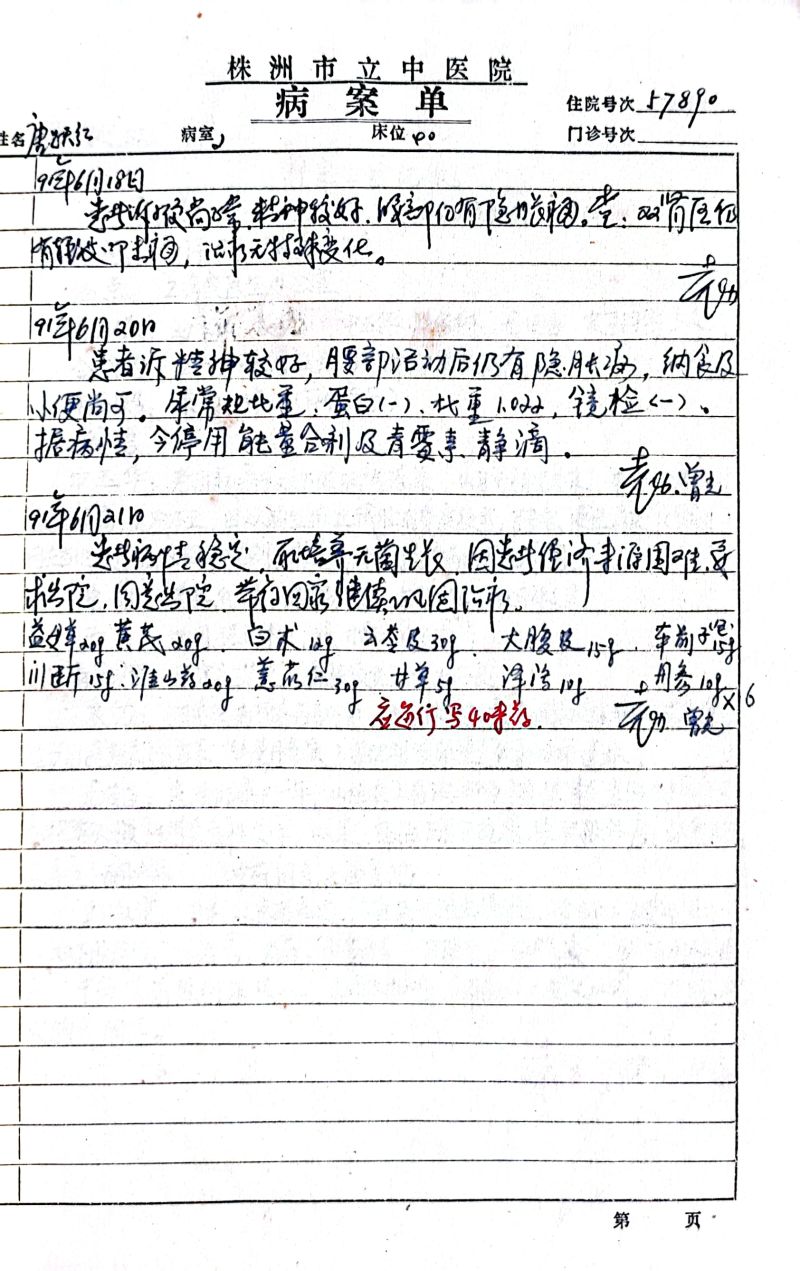 株洲市立中医院
病案单
住院号次 57890
姓名 唐 红 病室 床位 40 门诊号次
91年6月18日
患者诉纳便尚正常,精神较好,腰部仍有隐胀痛。查:双肾区仍
有轻度叩击痛,治疗无特殊变化。
91年6月20日
患者诉精神较好,腰部活动后仍有隐胀痛,纳食及
小便尚可。尿常规比重:蛋白(一)、比重1.022,镜检(一)。
据病情,今停用能量合剂及青霉素静滴。
曾
91年6月21日
患者病情稳定,尿培养无菌生长,因患者经济来源困难,要
求出院,同意出院,带药回家继续以巩固治疗。
益母草20g 黄芪20g 白术12g 云苓皮30g 大腹皮15g 车前子(包)15g
川断15g 淮山药20g 薏苡仁30g 甘草5g 泽泻10g 丹参10g ×6
应逐行写4味药. 曾
第 页